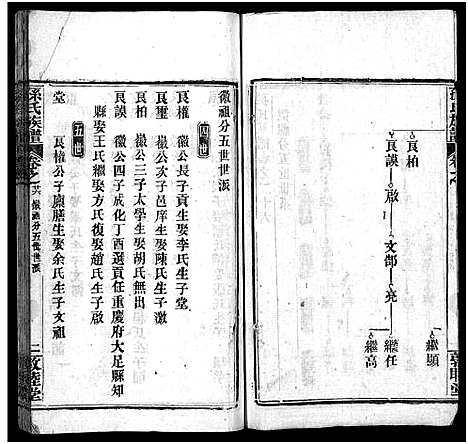 孫氏族譜
卷之
良柏
良謨——啟——文郁——亮
繼顯
繼任
繼高
敦睦堂
徽祖分五世世派
四世
良權 徽公長子貢生娶李氏生子堂
良璽 徽公次子邑庠生娶陳氏生子激
良柏 徽公三子太學生娶胡氏無出
良謨 徽公四子成化丁酉選貢任重慶府大足縣知
縣娶王氏繼娶方氏復娶趙氏生子啟
五世
堂 良權公子廩膳生娶余氏生子文祖
孫氏族譜
卷之六 徽祖分五世世派
二 敦睦堂